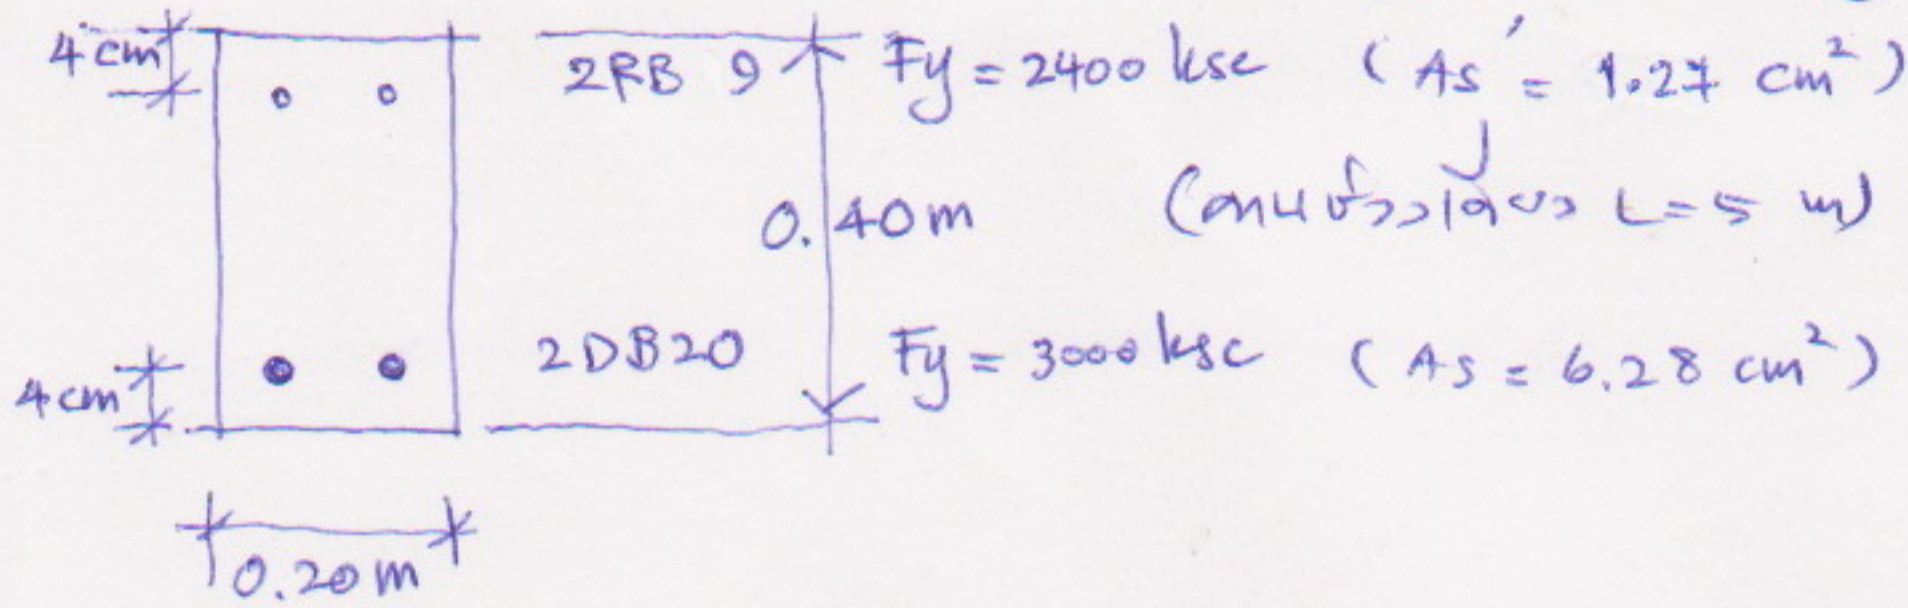 4 cm
2RB 9 Fy = 2400 ksc (As' = 1.27 cm²)
0.40 m (คานช่วงเดียว L = 5 m)
4 cm
2DB20 Fy = 3000 ksc (As = 6.28 cm²)
0.20 m